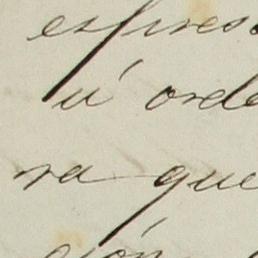 expres
ú orde
ra que
ión